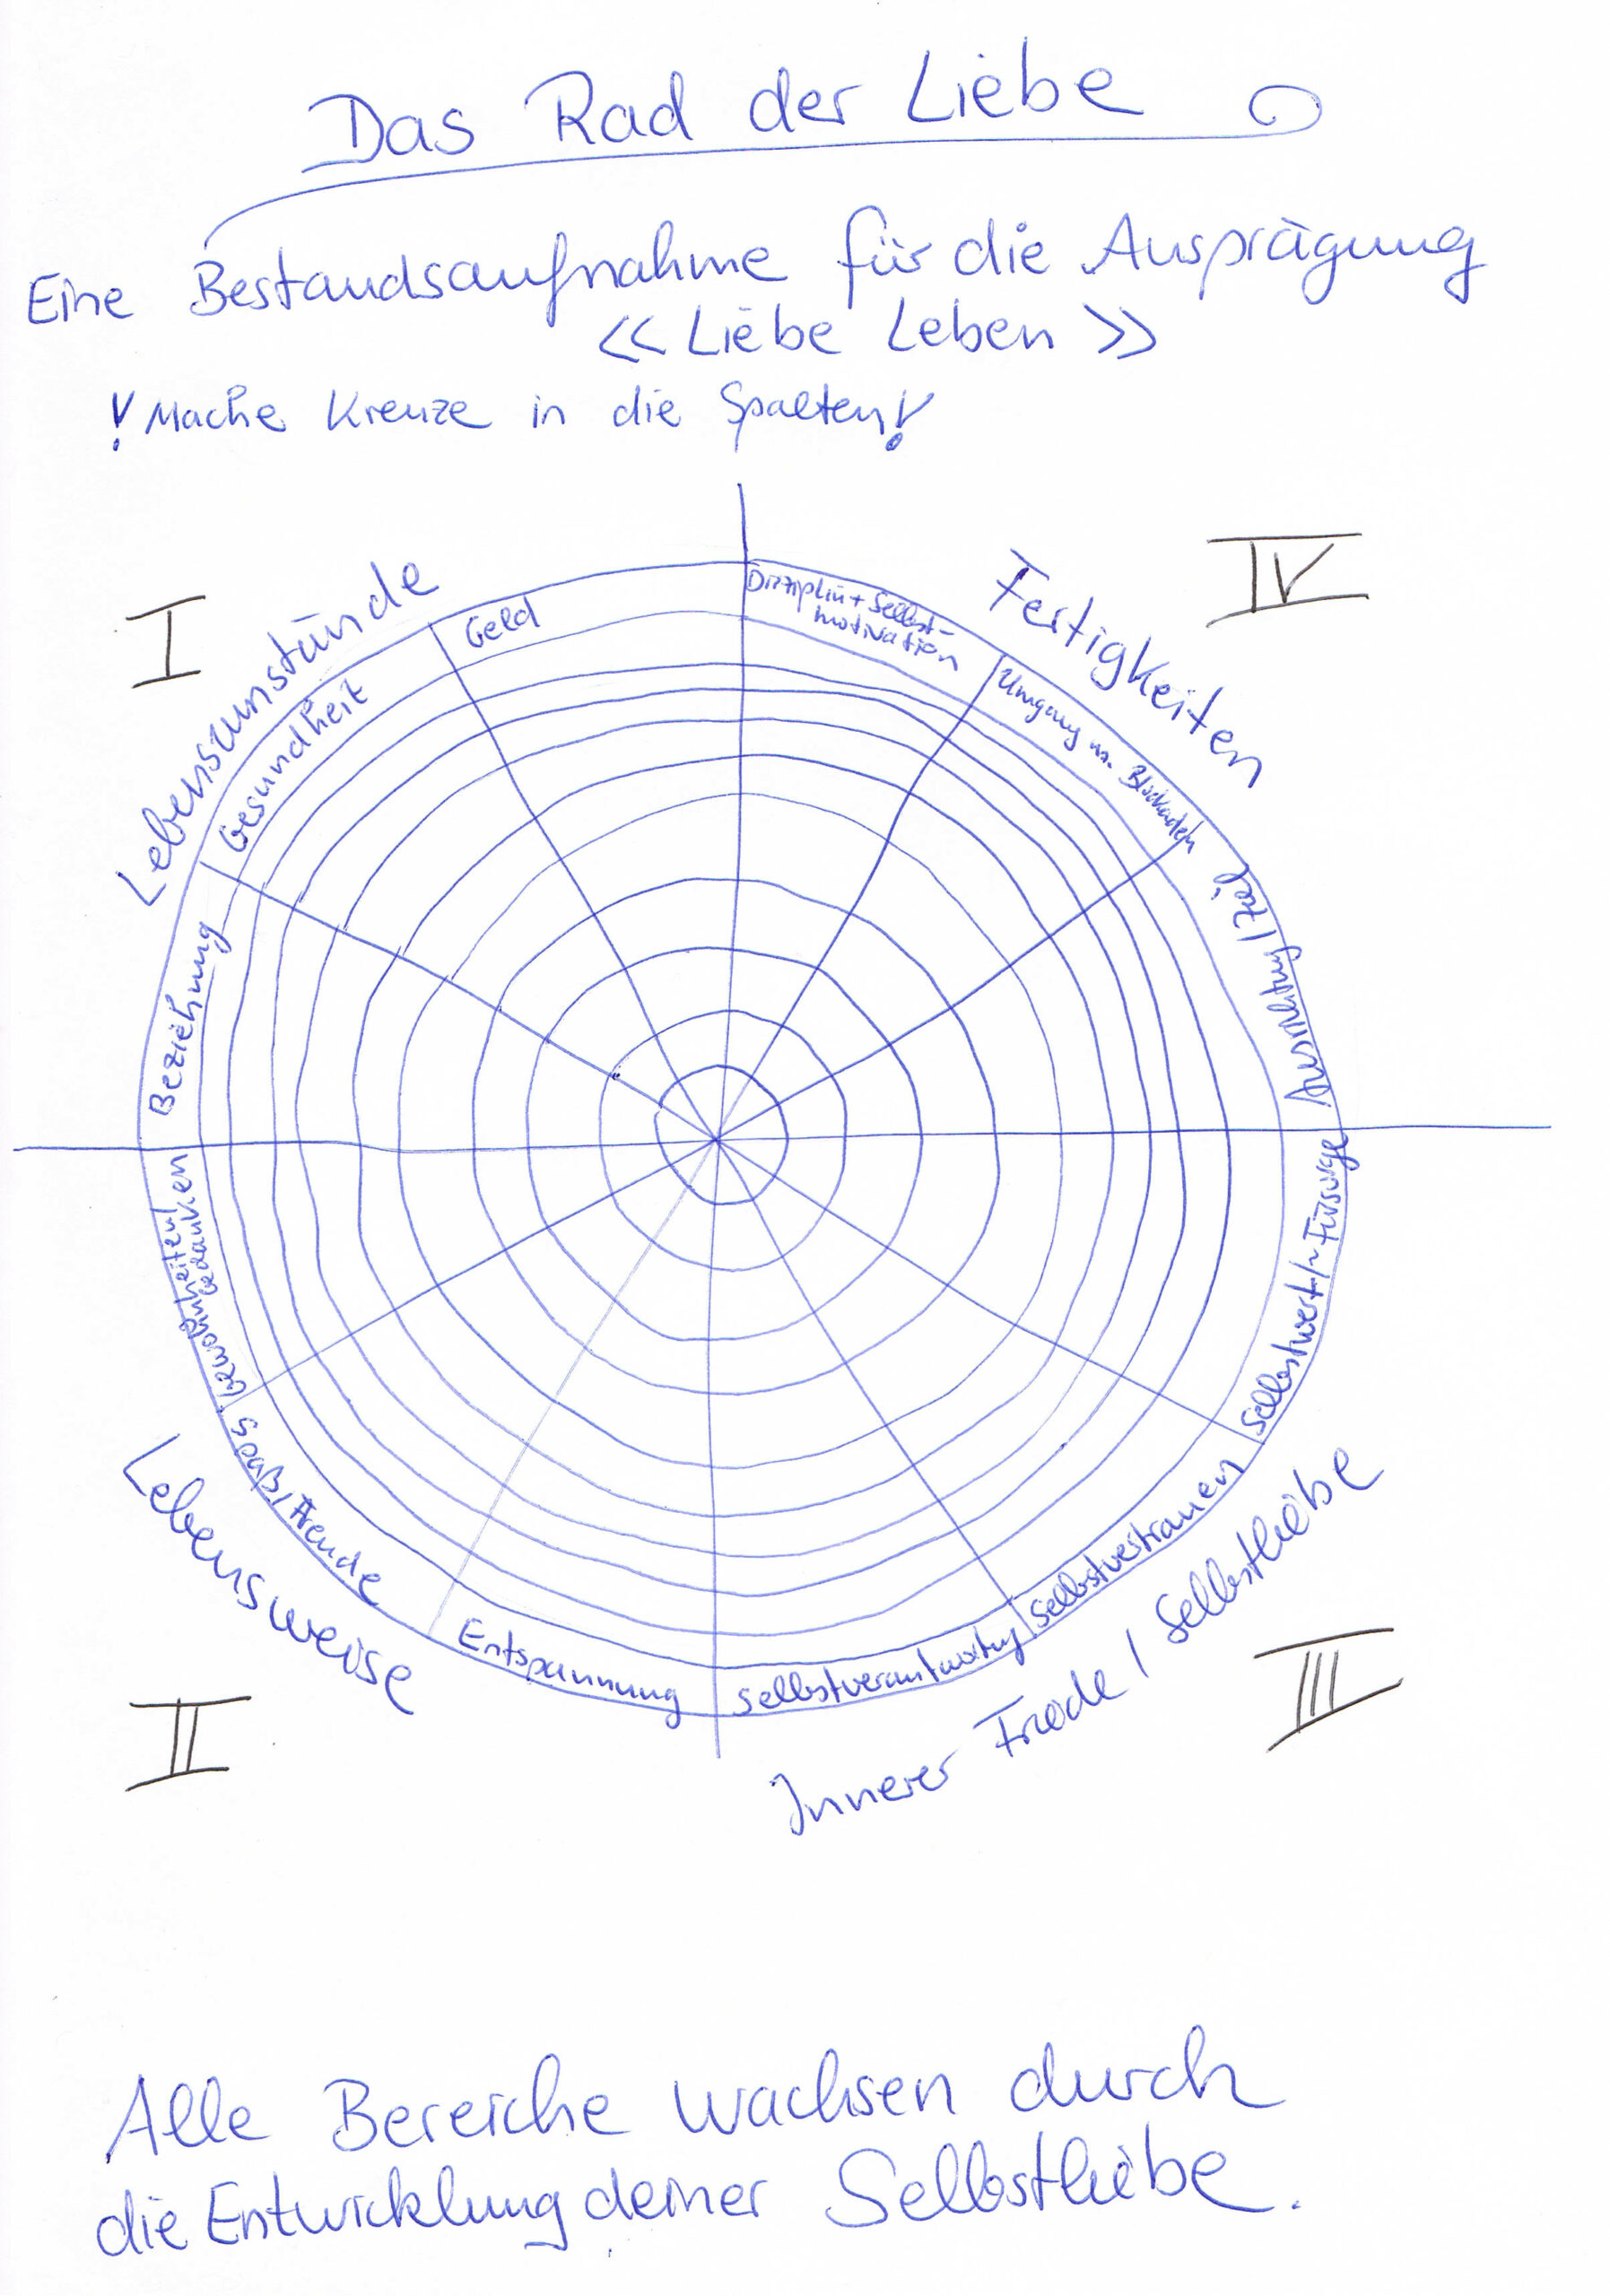 Das Rad der Liebe
Eine Bestandsaufnahme für die Ausprägung
<< Liebe Leben >>
! Mache Kreuze in die Spalten!
I
Lebensumstände
Geld
Gesundheit
Beziehung
IV
Fertigkeiten
Disziplin + Selbst-
motivation
Umgang m. Blockaden
Ausrichtung / Ziel
II
Lebensweise
Gewohnheiten/
Gedanken
Spaß / Freude
Entspannung
III
Innerer Friede / Selbstliebe
Selbstwert/~Fürsorge
Selbstvertrauen
Selbstverantwortung
Alle Bereiche wachsen durch
die Entwicklung deiner Selbstliebe.